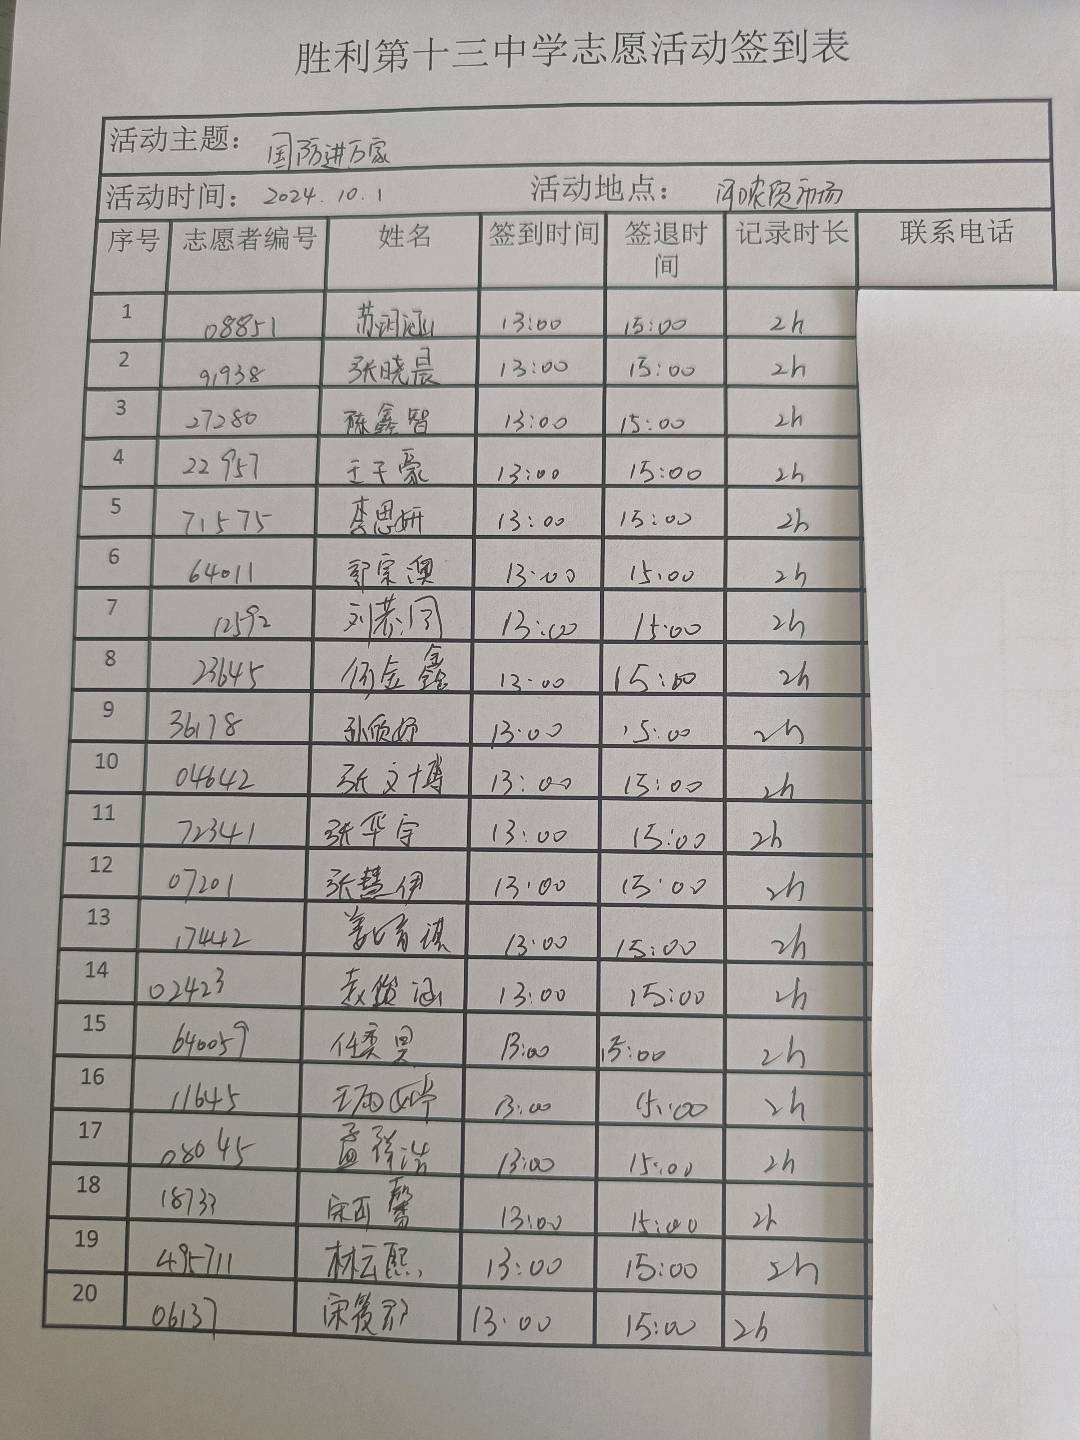 胜利第十三中学志愿活动签到表
活动主题： 国防进万家
活动时间： 2024.10.1 活动地点： 贸市场
序号 志愿者编号 姓名 签到时间 签退时间 记录时长 联系电话
1 08851 苏润涵 13:00 15:00 2h
2 91938 张晓晨 13:00 15:00 2h
3 27280 陈鑫智 13:00 15:00 2h
4 22957 王子豪 13:00 15:00 2h
5 71575 李思妍 13:00 15:00 2h
6 64011 郭宗澳 13:00 15:00 2h
7 12592 刘慕 13:00 15:00 2h
8 23645 何金鑫 13:00 15:00 2h
9 36178 孙欣妤 13:00 15:00 2h
10 04642 张文博 13:00 15:00 2h
11 72341 张华宇 13:00 15:00 2h
12 07201 张慧伊 13:00 15:00 2h
13 17442 姜 祺 13:00 15:00 2h
14 02423 袁俊涵 13:00 15:00 2h
15 640059 任奕昊 13:00 15:00 2h
16 11645 王雨婷 13:00 15:00 2h
17 08045 孟祥浩 13:00 15:00 2h
18 18733 宋雨馨 13:00 15:00 2h
19 495711 林云熙 13:00 15:00 2h
20 06137 宋筱 13:00 15:00 2h